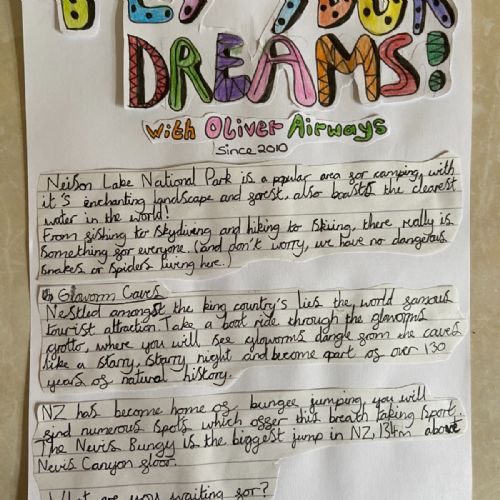 YOUR
DREAMS!
With Oliver Airways
Since 2010
Nelson Lake National Park is a popular area for camping, with
it's enchanting landscape and forest, also boasts the clearest
water in the world!
From fishing to skydiving and hiking to skiing, there really is
something for everyone. (and don't worry, we have no dangerous
snakes or spiders living here.)
Gloworm Caves
Nestled amongst the king country's lies the world famous
tourist attraction. Take a boat ride through the gloworms
grotto, where you will see gloworms dangle from the caves
like a starry, starry night and become part of over 130
years of natural history.
NZ has become home of bungee jumping, you will
find numerous spots which offer this breath taking sport.
The Nevis Bungy is the biggest jump in NZ, 134m above
Nevis Canyon floor.
What are you waiting for?